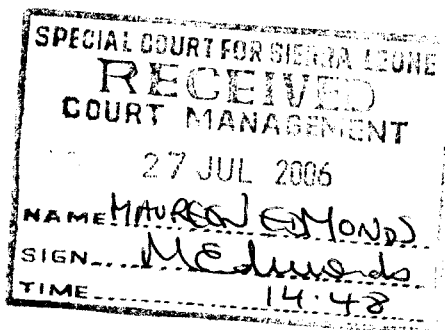 SPECIAL COURT FOR SIERRA LEONE
RECEIVED
COURT MANAGEMENT
27 JUL 2006
NAME MAUREEN EDMONDS
SIGN MEdmonds
TIME 14.48